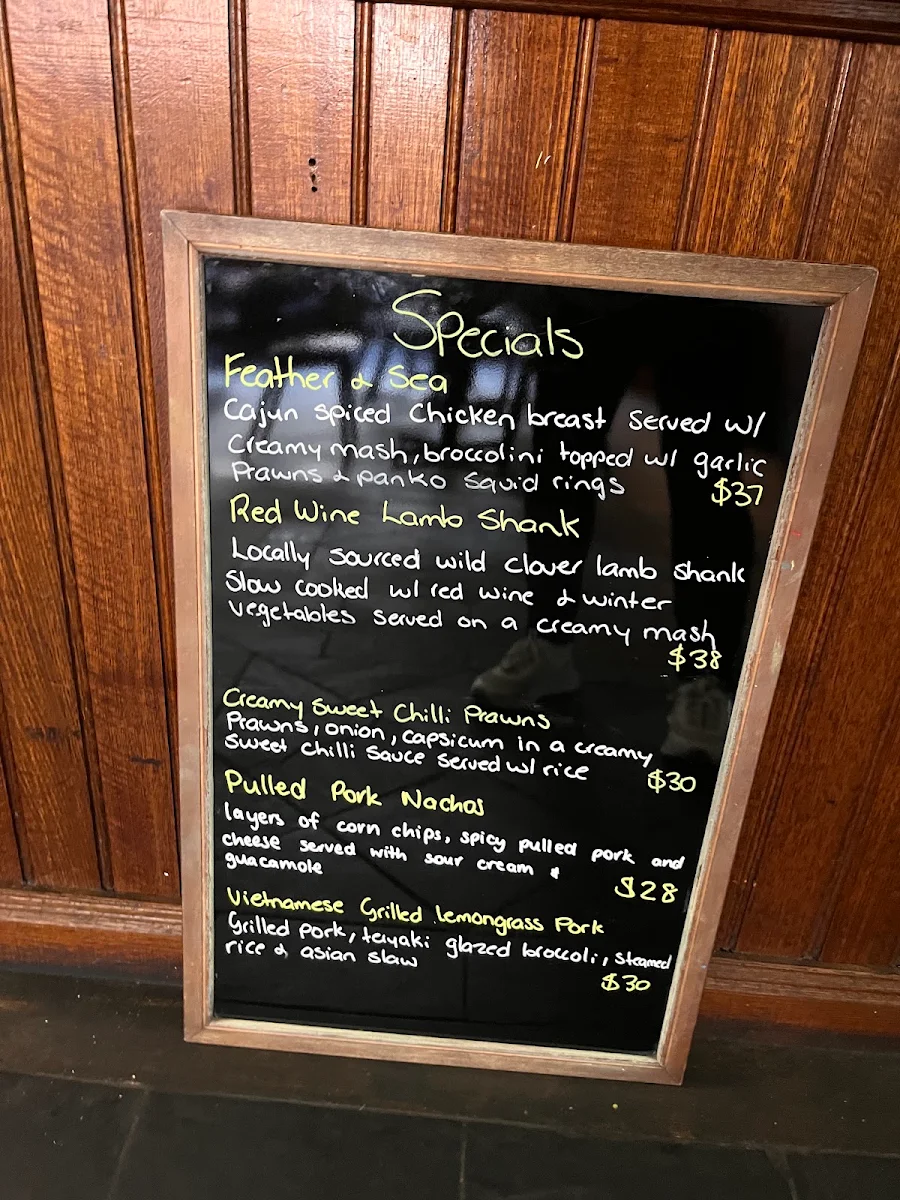 Specials
Feather & Sea
Cajun spiced Chicken breast served w/
Creamy mash, broccolini topped w/ garlic
Prawns & panko squid rings $37
Red Wine Lamb Shank
Locally sourced wild clover lamb shank
Slow cooked w/ red wine & winter
vegetables served on a creamy mash
$38
Creamy Sweet Chilli Prawns
Prawns, onion, capsicum in a creamy
Sweet Chilli Sauce served w/ rice $30
Pulled Pork Nachos
layers of corn chips, spicy pulled pork and
cheese served with sour cream &
guacamole $28
Vietnamese Grilled Lemongrass Pork
Grilled pork, teiyaki glazed broccoli, steamed
rice & asian slaw
$30